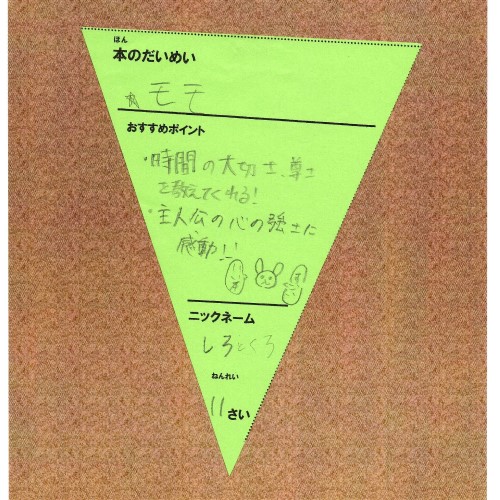 ほん
本のだいめい
モモ
おすすめポイント
・時間の大切さ、尊さ
を教えてくれる!
・主人公の心の強さに
感動!!
ニックネーム
しろとくろ
ねんれい
11さい